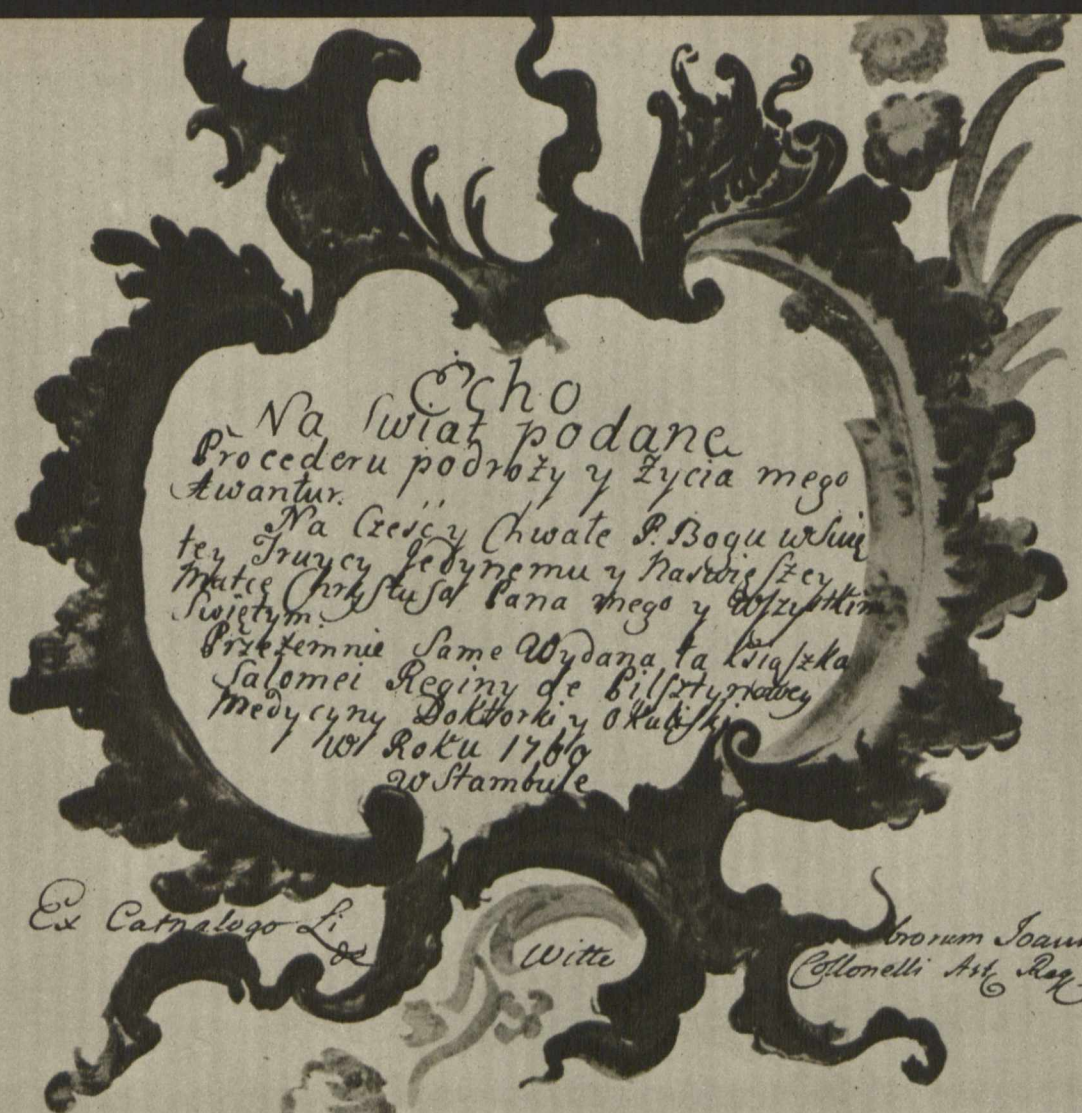 Echo
Na Swiat podane
Procederu podroży y Życia mego
Awantur.
Na Cześć y Chwałę P. Bogu w Swię
tey Truycy Jedynemu y Naswięszey
Matce Chrystusa Pana mego y Wszystkim
Swiętym.
Przezemnie Same Wydana ta Książka
Salomei Reginy de Pilsztynowey
Medycyny Doktorki y Okulistki
W Roku 1760
w Stambule
Ex Cathalogo Li brorum Joann
de Witte Collonelli Art Reg